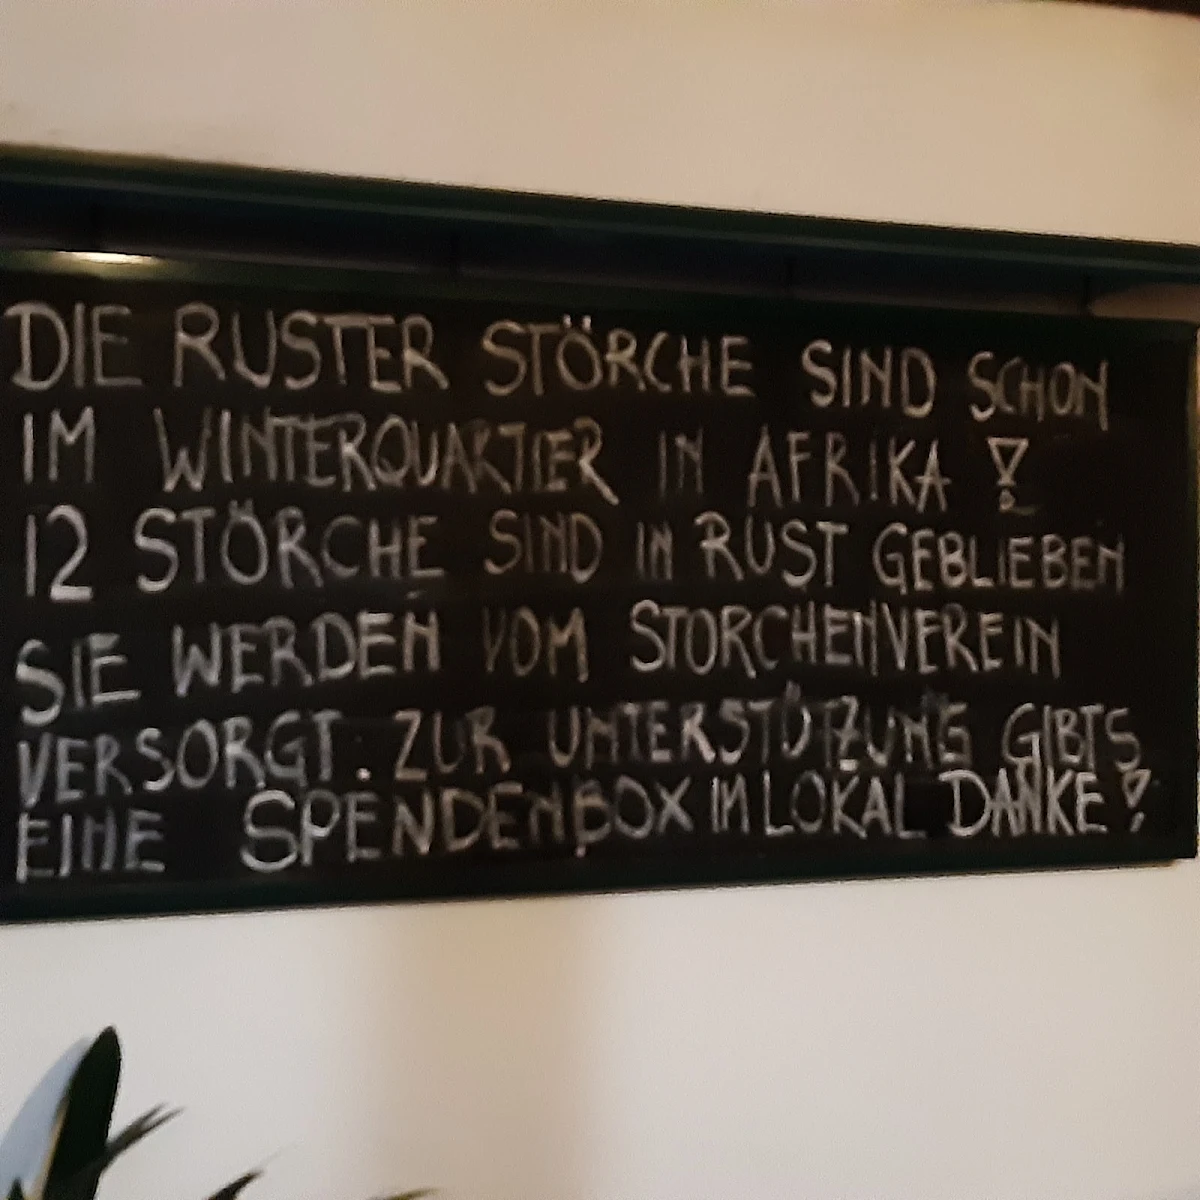 DIE RUSTER STÖRCHE SIND SCHON
IM WINTERQUARTIER IN AFRIKA !
12 STÖRCHE SIND IN RUST GEBLIEBEN
SIE WERDEN VOM STORCHENVEREIN
VERSORGT. ZUR UNTERSTÜTZUNG GIBTS
EINE SPENDENBOX IM LOKAL DANKE !